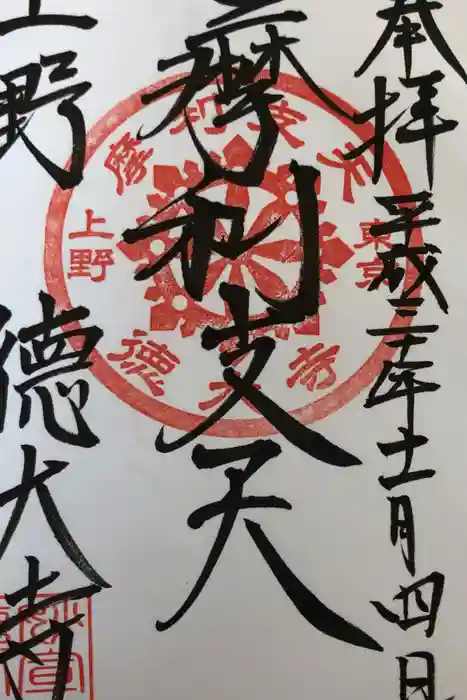 奉拝
平成三十年十一月四日
摩利支天
上野
徳大寺
摩利支天
東京
上野
徳大寺